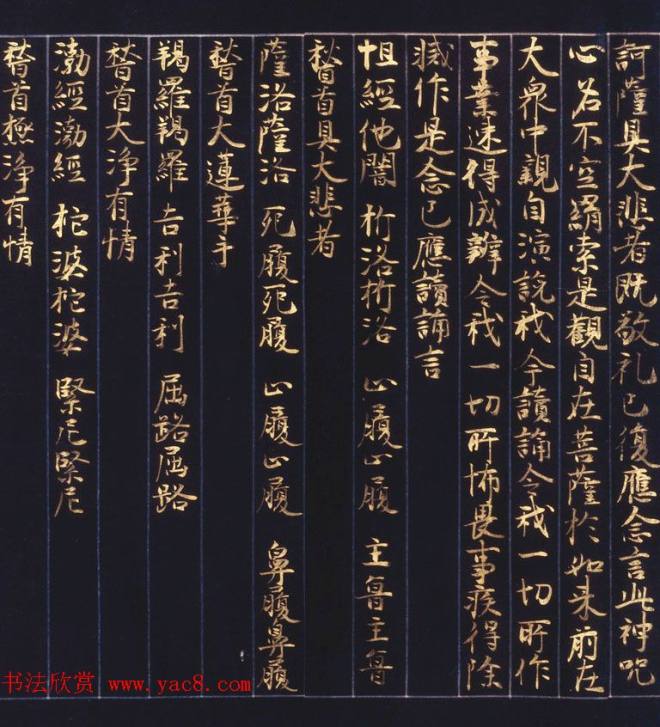 訶薩具大悲者既敬礼已復應念言此神呪
心名不空羂索是觀自在菩薩於如来前在
大衆中親自演說我今讀誦令我一切所作
事業速得成辦令我一切所怖畏事疾得除
滅作是念已應讀誦言
怛經他闇 桁洛桁洛 止履止履 主魯主魯
稽首具大悲者
薩洛薩洛 死履死履 止履止履 鼻履鼻履
稽首大蓮華手
羯羅羯羅 吉利吉利 屈路屈路
稽首大淨有情
渤經渤經 柁婆柁婆 緊尼緊尼
稽首極淨有情
书法欣赏 www.yac8.com